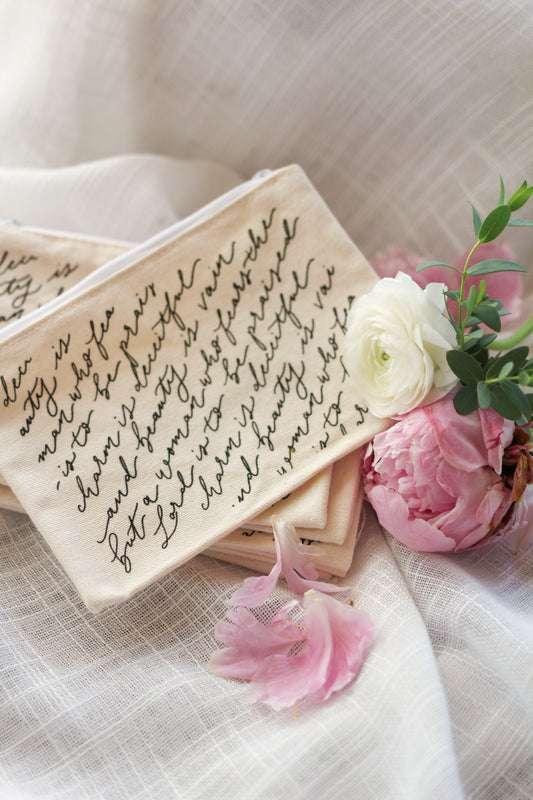 auty is
auty is
man who fea
is to be prais
charm is deceitful
and beauty is vain
but a woman who fears the
Lord is to be praised
charm is deceitful
nd beauty is vai
woman who fea